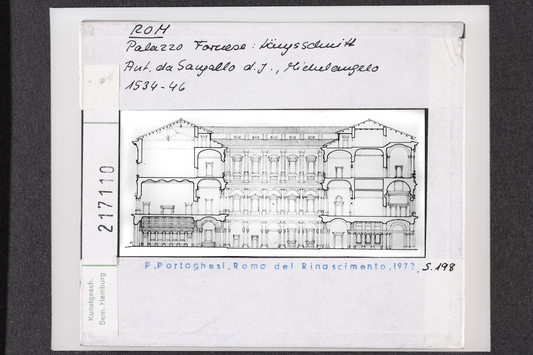 ROM
Palazzo Farnese: Längsschnitt
Ant. da Sangallo d. J., Michelangelo
1534-46
217110
P. Portoghesi, Roma del Rinascimento, 197?, S. 198
Kunstgesch.
Sem. Hamburg